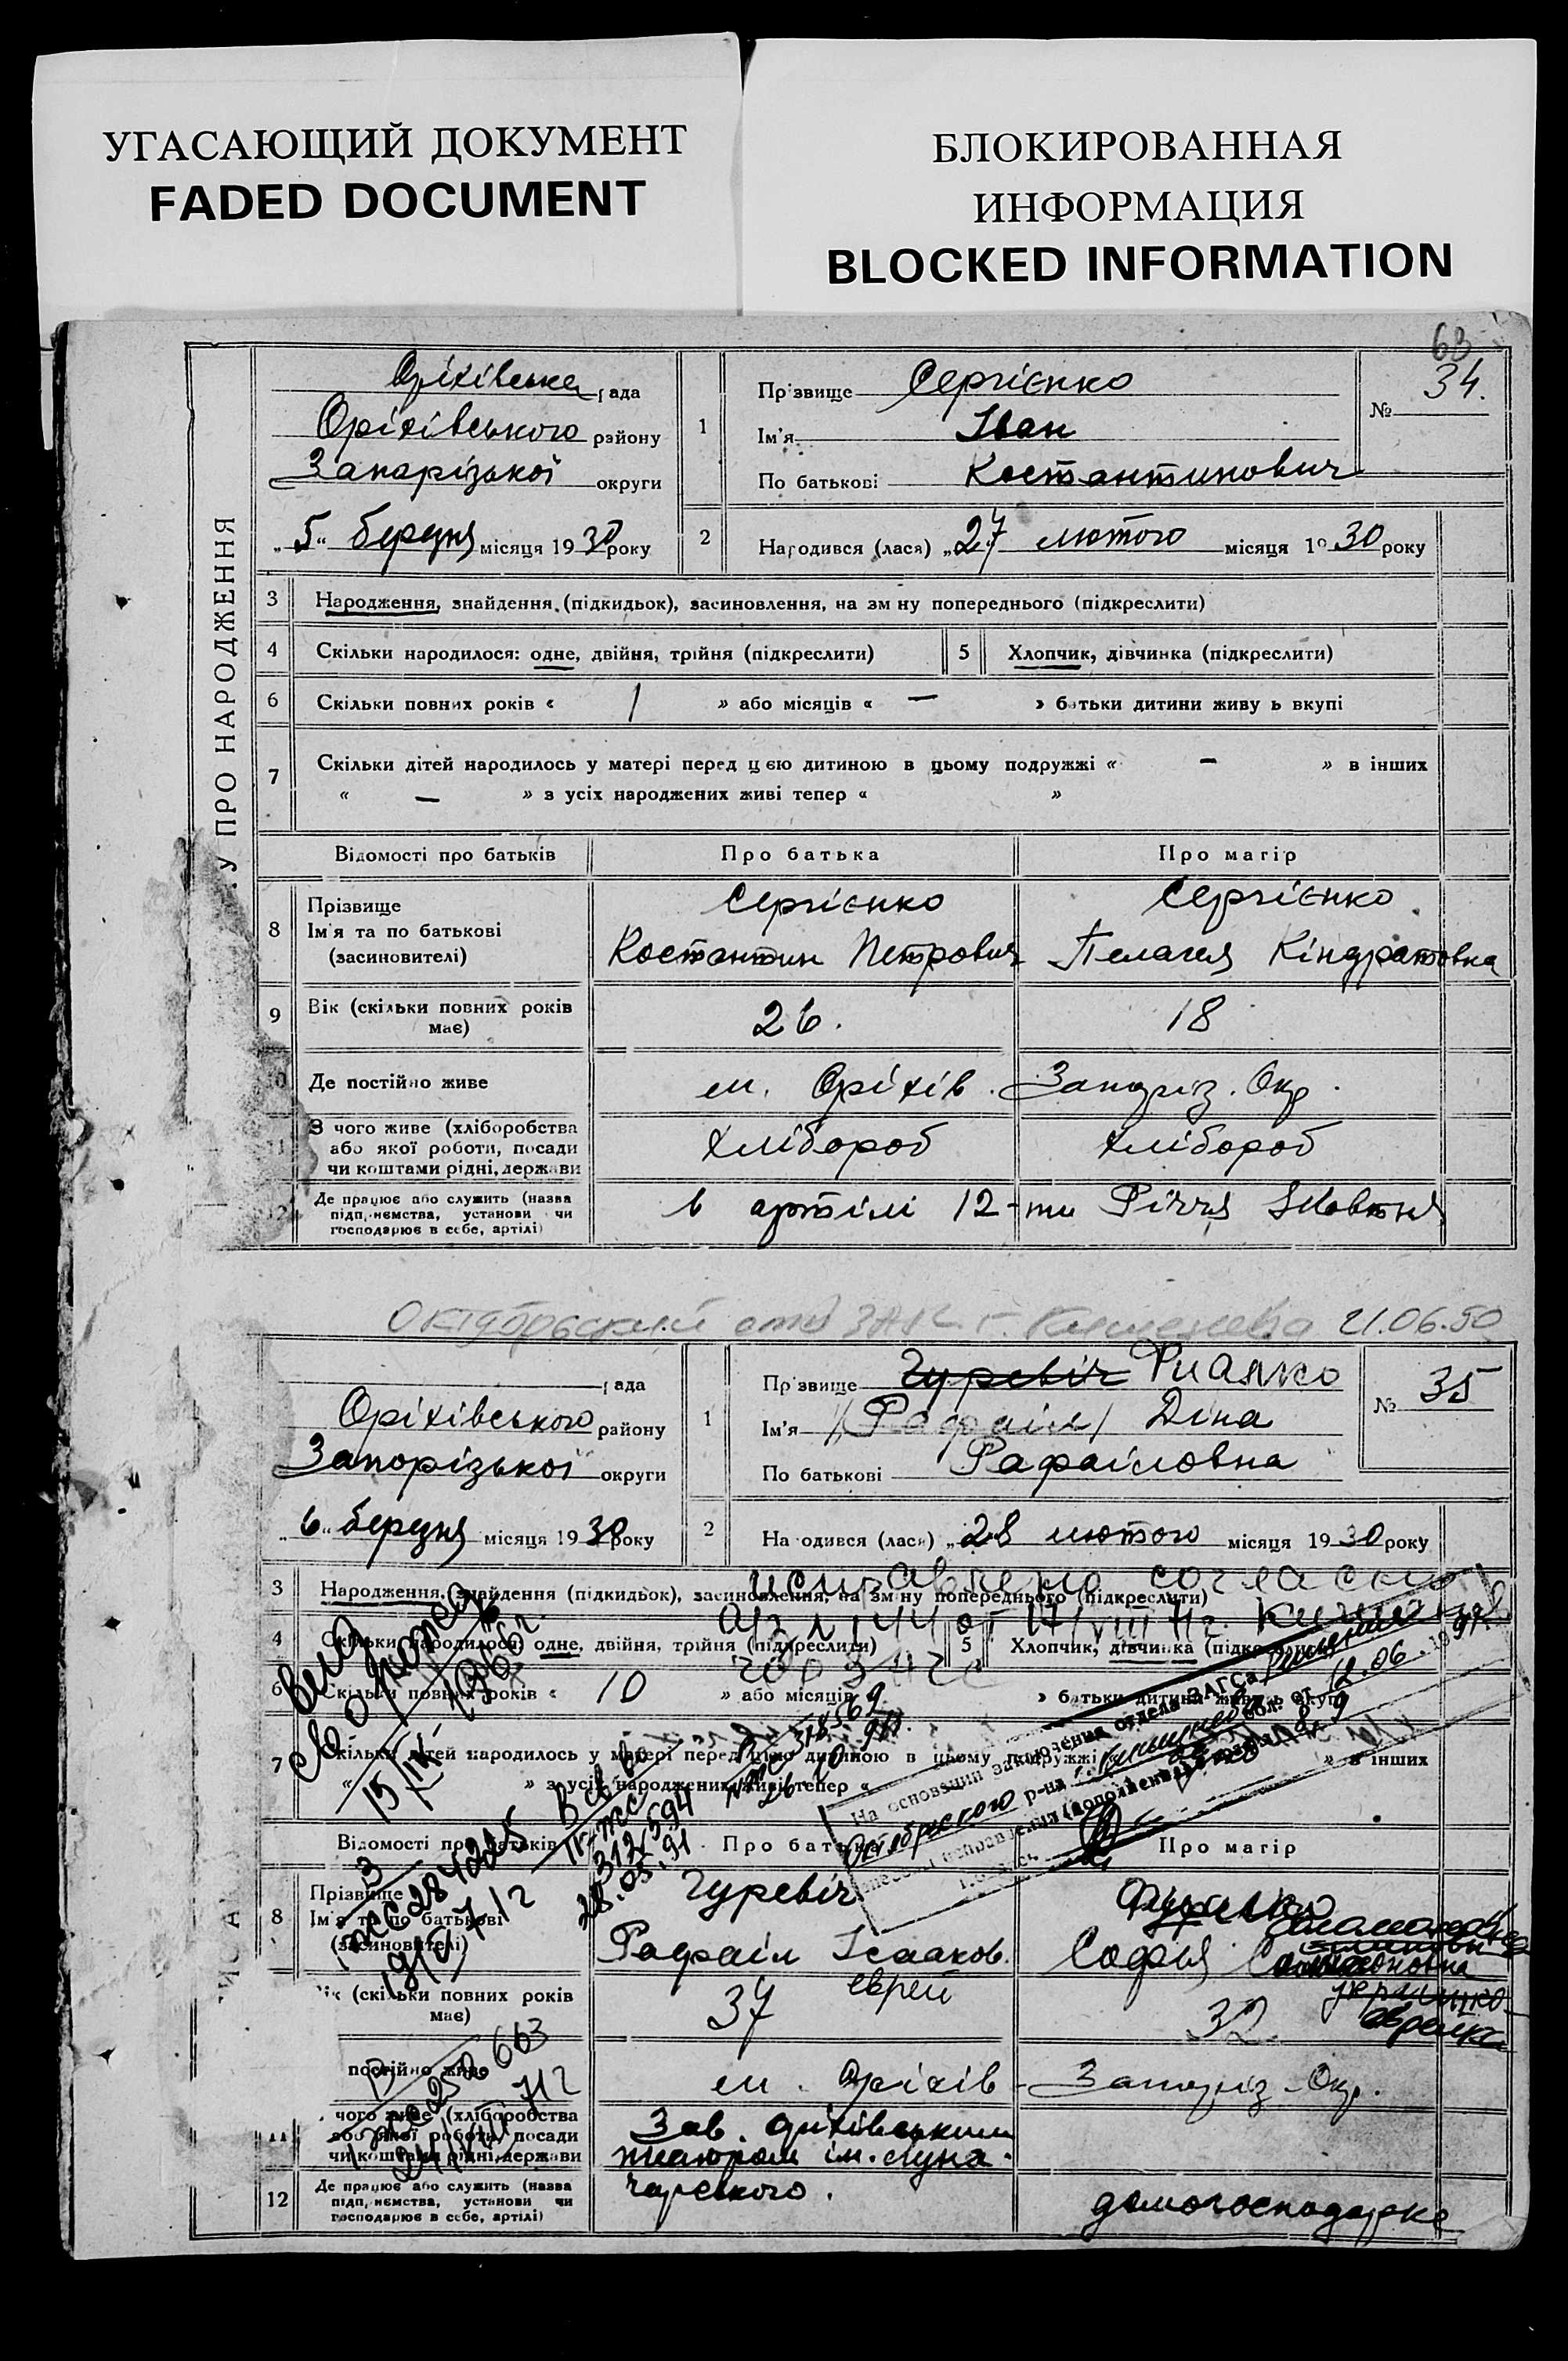 УГАСАЮЩИЙ ДОКУМЕНТ
FADED DOCUMENT
БЛОКИРОВАННАЯ
ИНФОРМАЦИЯ
BLOCKED INFORMATION
63
У ПРО НАРОДЖЕННЯ
Оріхівська рада
Оріхівського району
Запорізької округи
„5“ березня місяця 1930 року
1 Прізвище Сергієнко
Ім'я Іван
По батькові Костантинович
№ 34.
2 Народився (лася) „27 лютого місяця 1930 року
3 Народження, знайдення (підкидьок), засиновлення, на зм ну попереднього (підкреслити)
4 Скільки народилося: одне, двійня, трійня (підкреслити) 5 Хлопчик, дівчинка (підкреслити)
6 Скільки повних років « 1 » або місяців « — » батьки дитини живу ь вкупі
7 Скільки дітей народилось у матері перед цією дитиною в цьому подружжі « — » в інших
« — » з усіх народжених живі тепер « »
Відомості про батьків Про батька Про матір
8 Прізвище
Ім'я та по батькові
(засиновителі)
Сергієнко
Костантин Петрович
Сергієнко
Пелагея Кіндратовна
9 Вік (скільки повних років має) 26. 18
Де постійно живе м. Оріхів. Запоріз. Окр.
З чого живе (хліборобства
або якої роботи, посади
чи коштами рідні, держави
Хлібороб Хлібороб
Де працює або служить (назва
підп, иємства, установи чи
господарює в себе, артілі)
в артілі 12-ти Річчя Жовтня
Октябрьский отд ЗАГС г. Кишенева 21.06.
рада
Оріхівського району
Запорізької округи
„6“ березня місяця 1930 року
1 Прізвище Гуревіч Фиалко
Ім'я /Рафаіл/ Діна
По батькові Рафаіловна
№ 35
2 На одився (лася) „28 лютого місяця 1930 року
3 Народження, знайдення (підкидьок), засиновлення, на зм ну попереднього (підкреслити)
исправлено согласно
4 Скільки народилося: одне, двійня, трійня (підкреслити) 5 Хлопчик, дівчинка (підкреслити)
6 Скільки повних років « 10 » або місяців » батьки дитини живу ь вкупі
7 Скільки дітей народилось у матері перед цією дитиною в цьому подружжі » в інших
« » з усіх народжених живі тепер «
На основании заключения отдела ЗАГСа
Октябрского р-на обл. от 12.06.
28.05.91
Відомості про батьків Про батька Про матір
8 Прізвище
Ім'я та по батькові
(засиновителі)
Гуревіч
Рафаіл Ісааков.
еврей
Софія
еврейка
Вік (скільки повних років має) 37 32
постійно живе м. Оріхів - Запоріз. Окр.
чого живе (хліборобства
або якої роботи, посади
чи коштами рідні, держави
Зав. оріхівським
театром ім. Луна-
чарського.
12 Де працює або служить (назва
підп, иємства, установи чи
господарює в себе, артілі)
домогосподарка